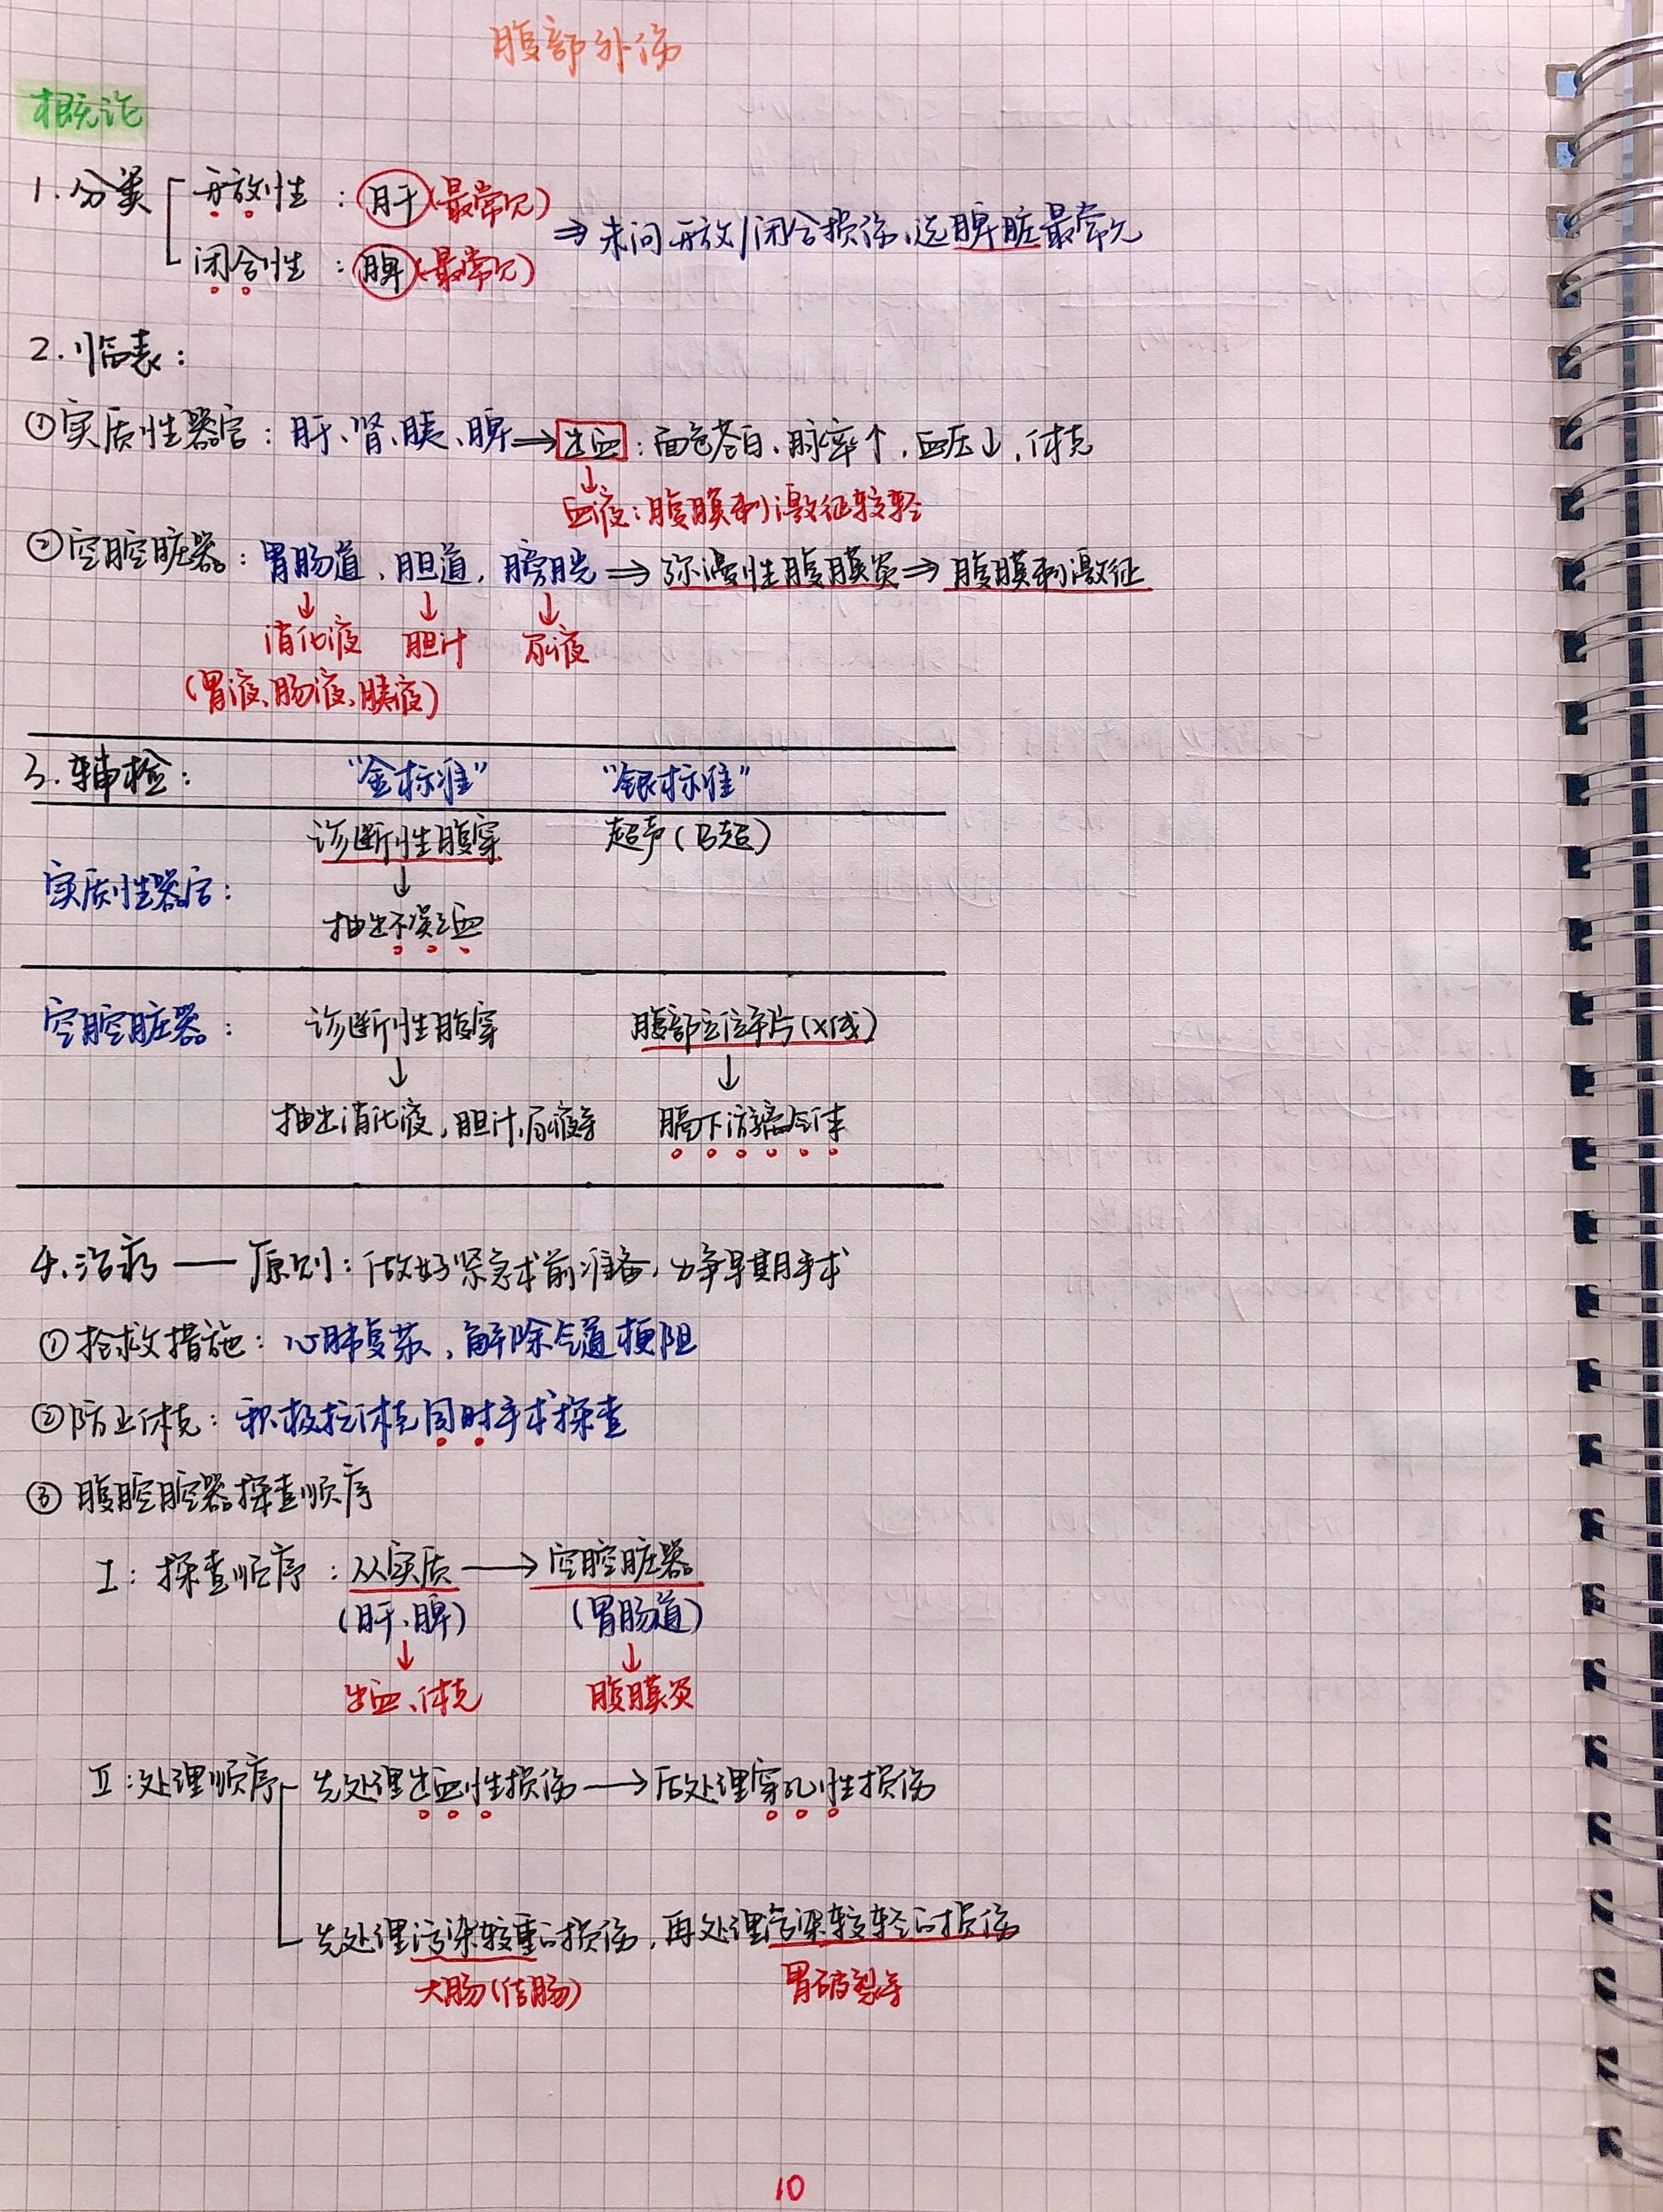 腹部外伤
概论
1.分类 开放性:肝(最常见)
⇒未问开放/闭合损伤,选脾脏最常见
闭合性:脾(最常见)
2.临表:
①实质性器官:肝、肾、胰、脾⇒出血:面色苍白、脉率↑,血压↓,休克
↓
血液:腹膜刺激征较轻
②空腔脏器:胃肠道,胆道,膀胱⇒弥漫性腹膜炎⇒腹膜刺激征
↓ ↓ ↓
消化液 胆汁 尿液
(胃液、肠液、胰液)
3.辅检: “金标准” “银标准”
诊断性腹穿 超声(B超)
实质性器官: ↓
抽出不凝血
空腔脏器: 诊断性腹穿 腹部立位平片(X线)
↓ ↓
抽出消化液,胆汁,尿液等 膈下游离气体
4.治疗——原则:做好紧急术前准备,力争早期手术
①抢救措施:心肺复苏,解除气道梗阻
②防止休克:积极抗休克同时手术探查
③腹腔脏器探查顺序
Ⅰ:探查顺序:从实质⟶空腔脏器
(肝、脾) (胃肠道)
↓ ↓
出血、休克 腹膜炎
Ⅱ:处理顺序 先处理出血性损伤⟶后处理穿孔性损伤
先处理污染较重的损伤,再处理污染较轻的损伤
大肠(结肠) 胃破裂等
10